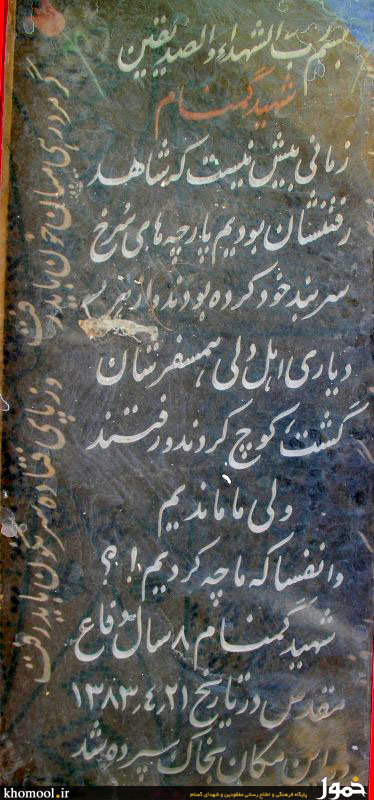 بسم رب الشهداء والصدیقین
شهید گمنام
زمانی بیش نیست که شاهد
رفتنشان بودیم پارچه های سرخ
سربند خود کرده بودند و از هر
دیاری اهل دلی همسفرشان
گشت، کوچ کردند و رفتند
ولی ما ماندیم
وانفسا که ما چه کردیم! ؟
شهید گمنام ۸ سال دفاع
مقدس در تاریخ ۱۳۸۳٫۴٫۲۱
در این مکان بخاک سپرده شد
گر مرد رهی میان خون باید رفت
وز پای فتاده سرنگون باید رفت
khomool.ir
پایگاه فرهنگی و اطلاع رسانی مفقودین و شهدای گمنام
خمول